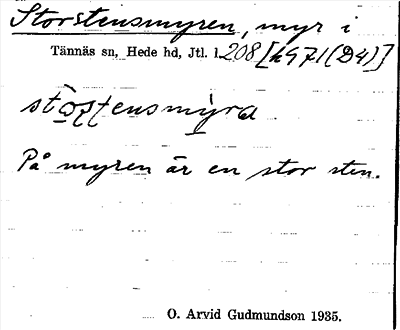 Storstensmyren, myr i
Tännäs sn, Hede hd, Jtl. l. 208 [h971(D4)]
På myren är en stor sten.
O. Arvid Gudmundson 1935.